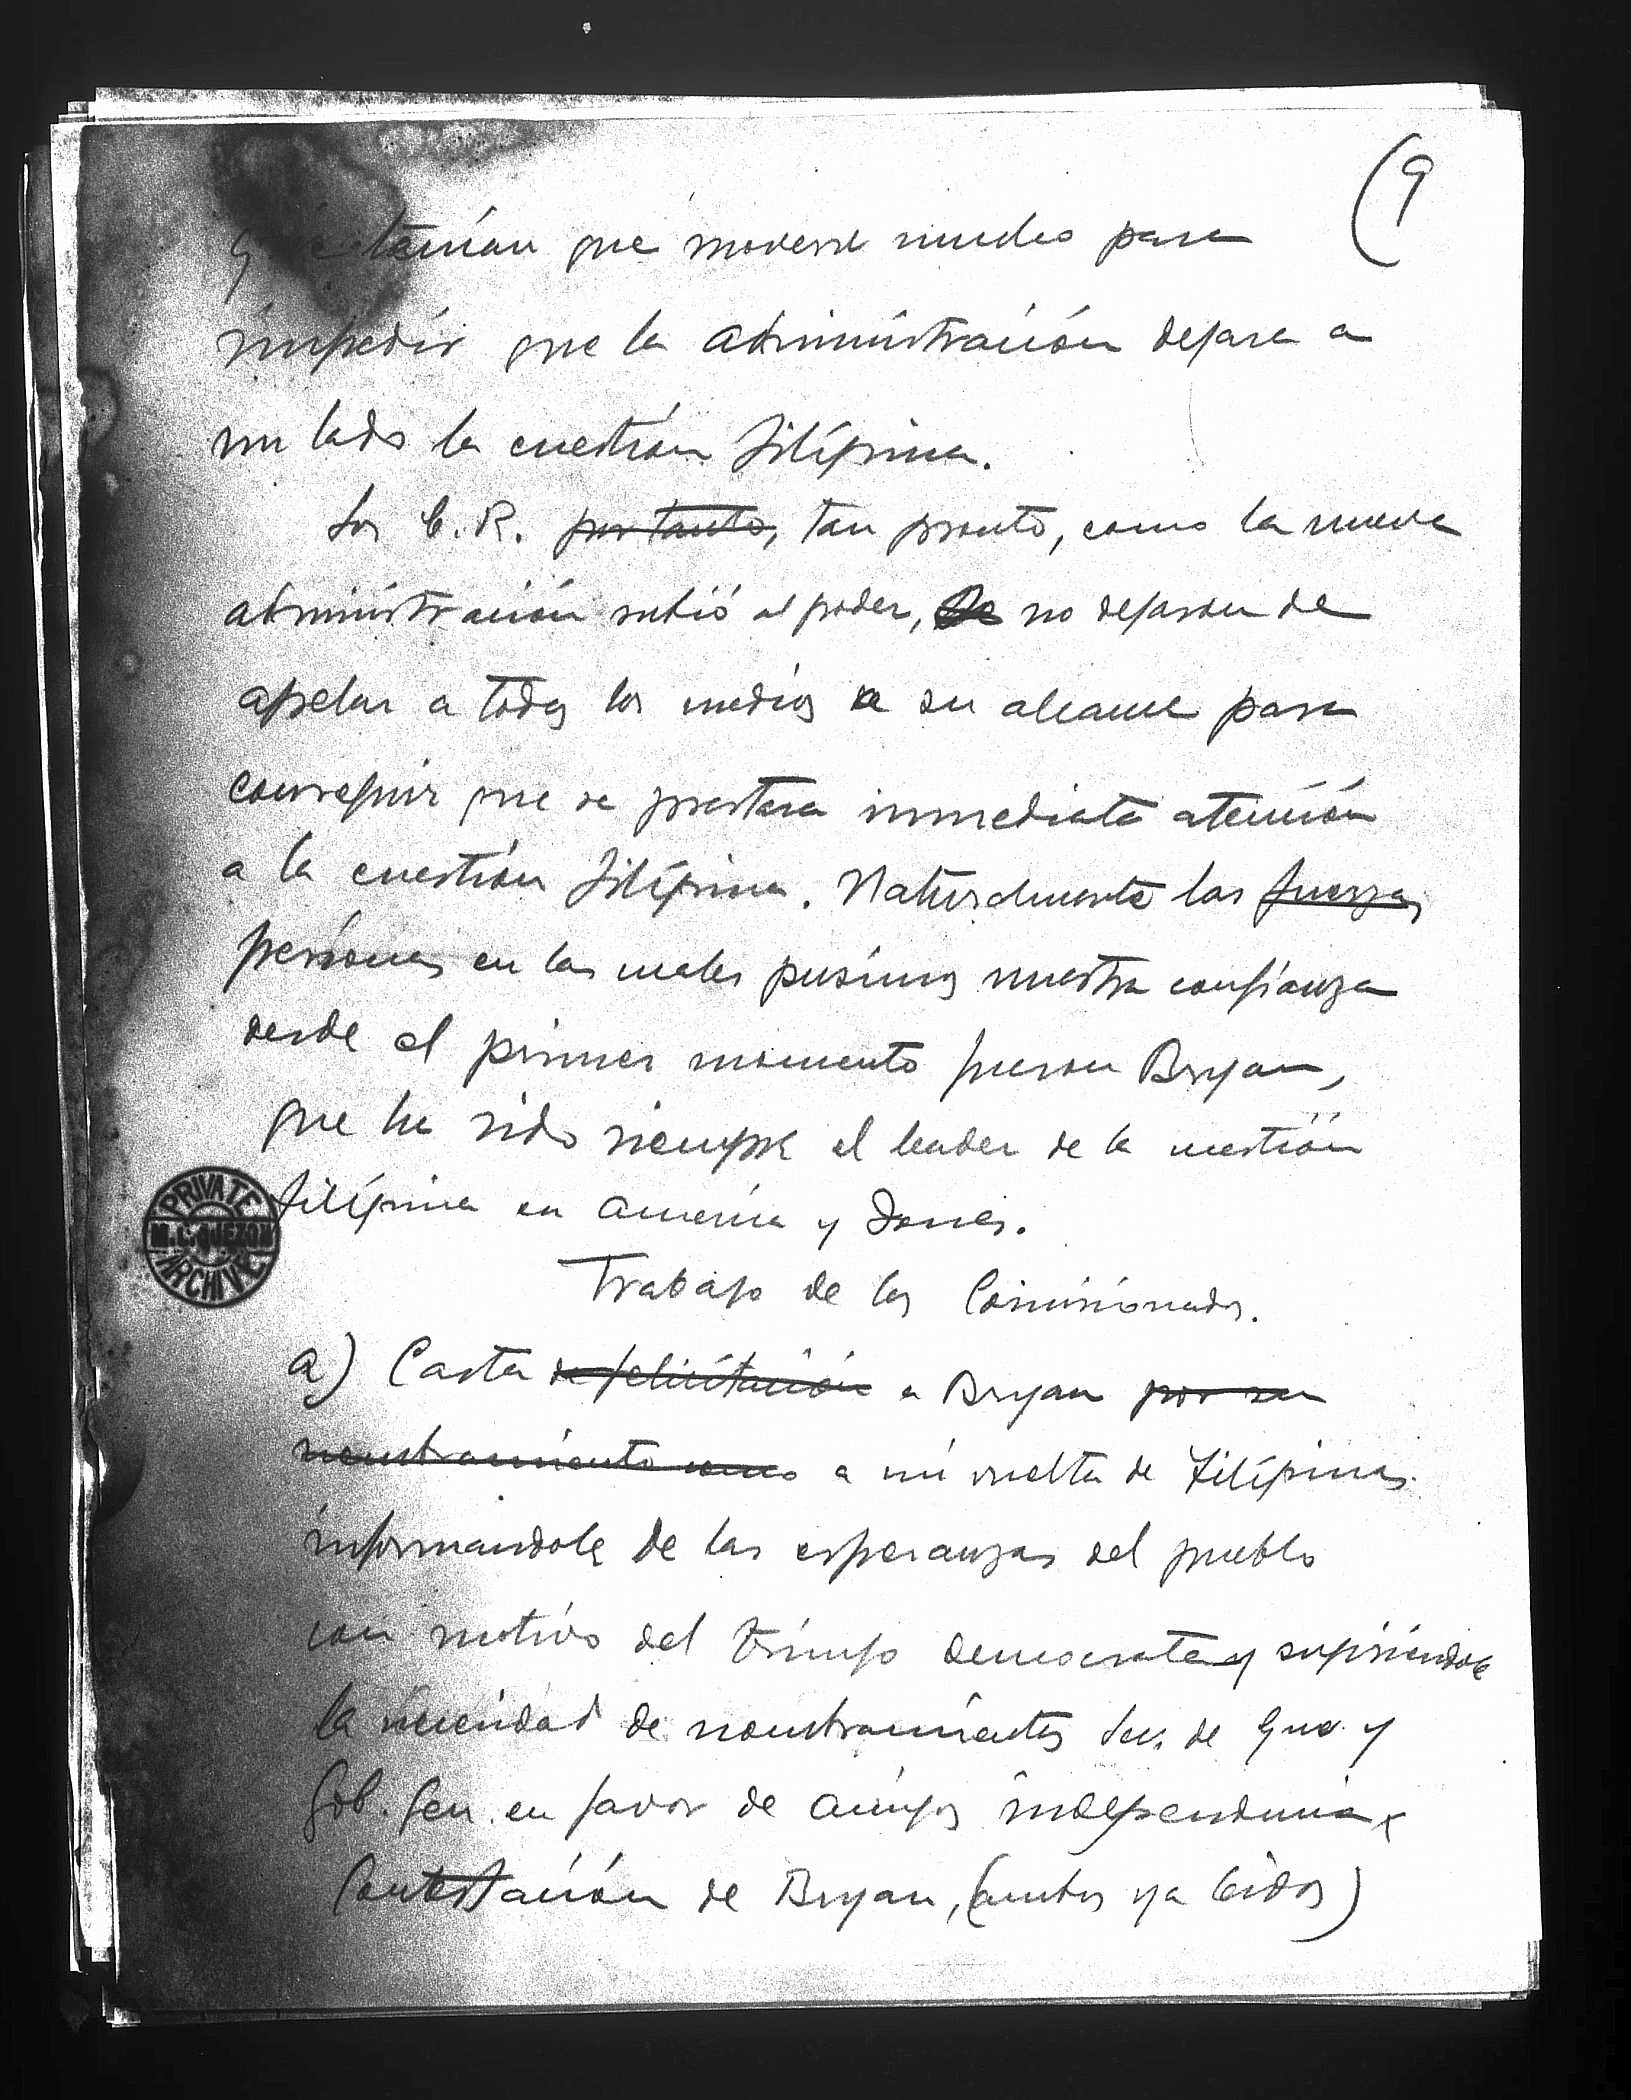 (9
que tenían que moverse mucho para
impedir que la administración dejara a
un lado la cuestión Filipina.
Los C. R. por tanto, tan pronto, como la nueva
administración subió al poder, no dejaron de
apelar a todos los medios a su alcance para
conseguir que se prestara inmediata atención
a la cuestión Filipina. Naturalmente las fuerzas
personas en las cuales pusimos nuestra confianza
desde el primer momento fueron Bryan,
que ha sido siempre el leader de la cuestión
Filipina en America y Jones.
Trabajo de los Comisionados.
a) Carta de felicitación a Bryan por su
nombramiento como a mi vuelta de Filipinas
informandole de las esperanzas del pueblo
con motivo del triunfo democrata y sugiriéndole
la necesidad de nombramientos Sec. de Gue. y
Gob. Gen. en favor de amigos independencia
Contestación de Bryan, (ambos ya leidos)
PRIVATE
M. L. QUEZON
ARCHIVE